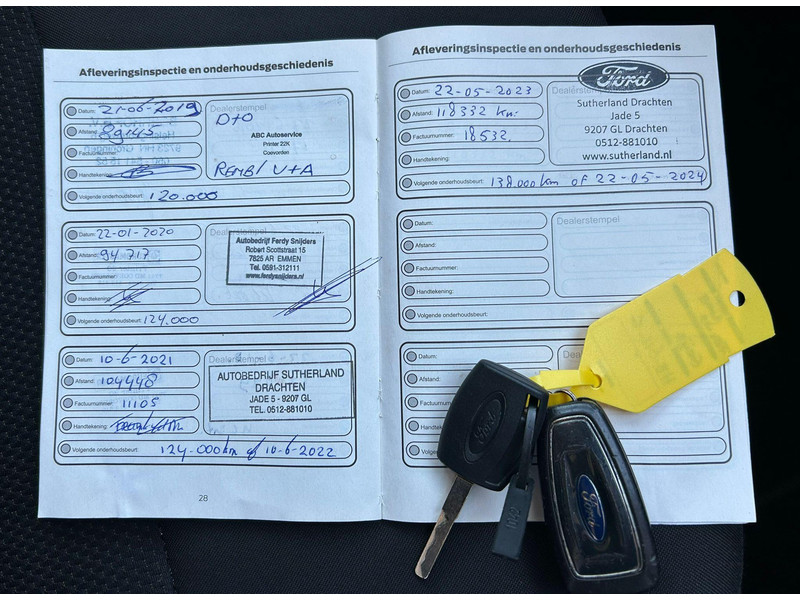 Afleveringsinspectie en onderhoudsgeschiedenis
Datum: 21-06-2019
Dealerstempel
Afstand: 89145
D+O
ABC Autoservice
Printer 22K
Coevorden
Factuurnummer:
Handtekening:
REMBL V+A
Volgende onderhoudsbeurt: 120.000
Datum: 22-01-2020
Afstand: 94.717
Factuurnummer:
Handtekening:
Autobedrijf Ferdy Snijders
Robert Scottstraat 15
7825 AR EMMEN
Tel. 0591-312111
www.ferdysnijders.nl
Volgende onderhoudsbeurt: 124.000
Datum: 10-6-2021
Dealerstempel
Afstand: 104448
Factuurnummer: 11105
Handtekening:
AUTOBEDRIJF SUTHERLAND
DRACHTEN
JADE 5 - 9207 GL
TEL. 0512-881010
Volgende onderhoudsbeurt: 124.000km of 10-6-2022
28
Afleveringsinspectie en onderhoudsgeschiedenis
Datum: 22-05-2023
Afstand: 118332 km.
Factuurnummer: 18532.
Handtekening:
Ford
Sutherland Drachten
Jade 5
9207 GL Drachten
0512-881010
www.sutherland.nl
Volgende onderhoudsbeurt: 138.000km of 22-05-2024
Datum:
Dealerstempel
Afstand:
Factuurnummer:
Handtekening:
Volgende onderhoudsbeurt:
Datum:
Afstand:
Factuurnummer
Handtekening:
Volgende onderhoudsbeurt:
Ford
Ford